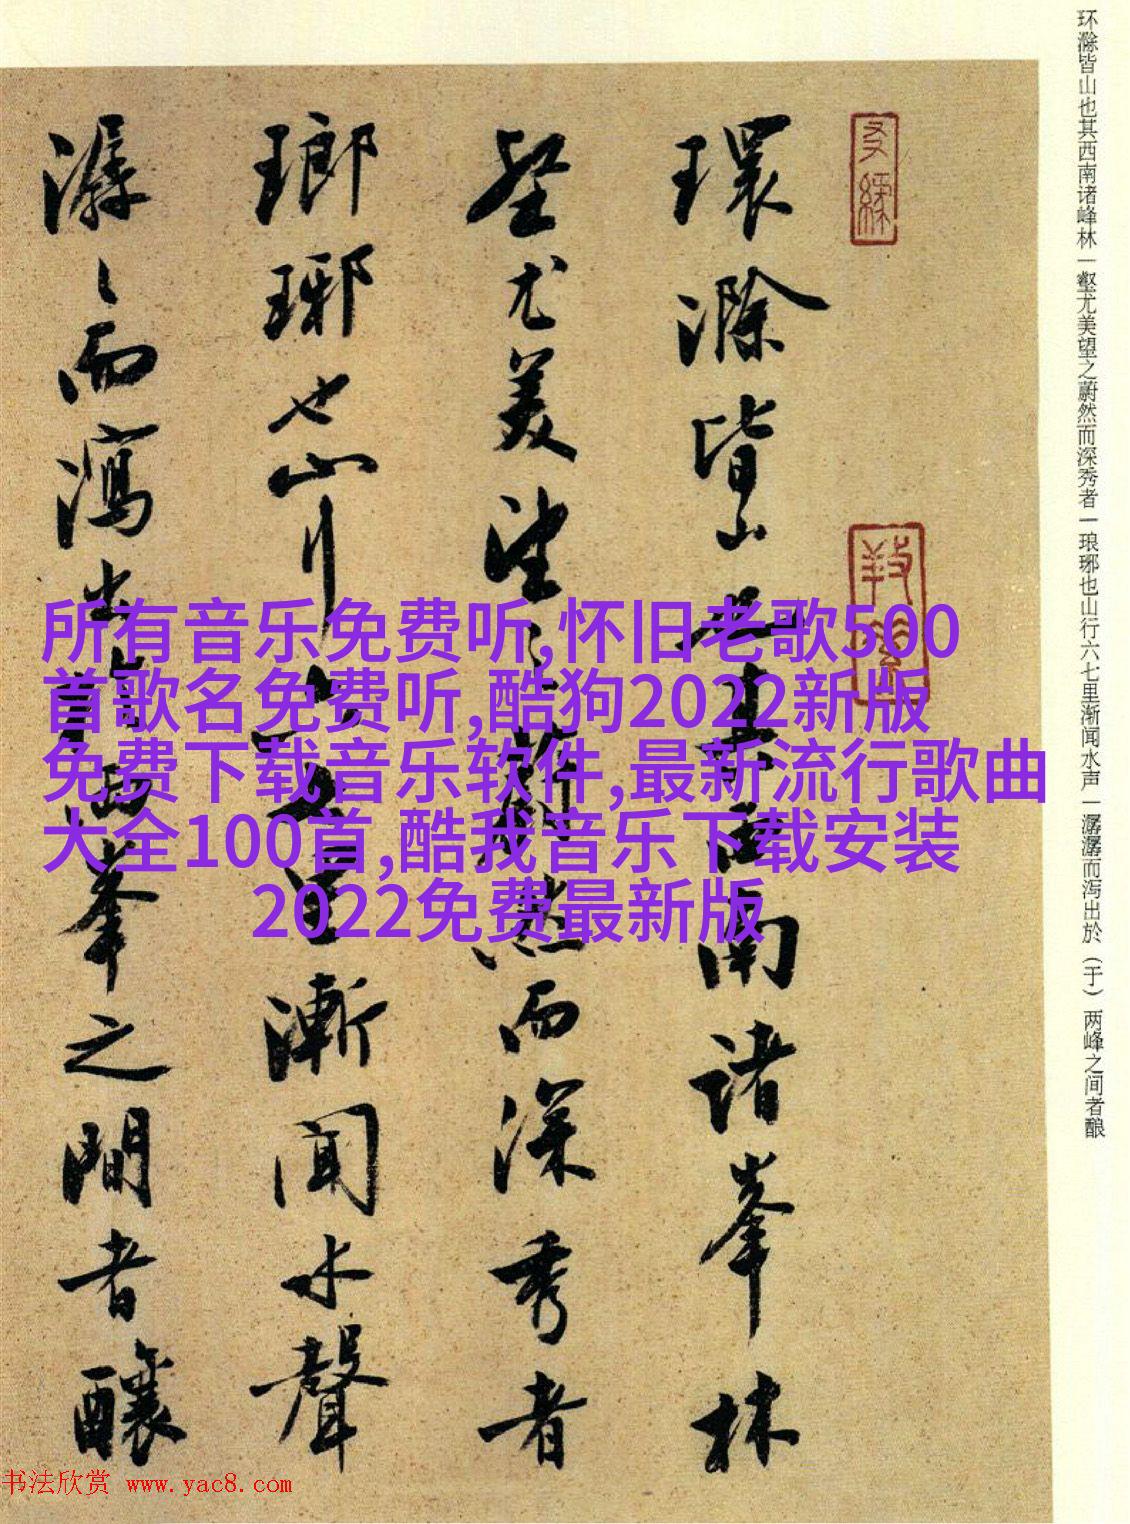 环滁皆山也其西南诸峰林一壑尤美望之蔚然而深秀者一琅琊也山行六七里渐闻水声一潺潺而泻出於（于）两峰之间者酿
環滁皆山也其西南諸峯林
壑尤美望之蔚然而深秀者
瑯琊也山行六七里漸聞水聲
潺〻而瀉出于兩峯之間者釀
所有音乐免费听,怀旧老歌500
首歌名免费听,酷狗2022新版
免费下载音乐软件,最新流行歌曲
大全100首,酷我音乐下载安装
2022免费最新版
书法欣赏 www.yac8.com